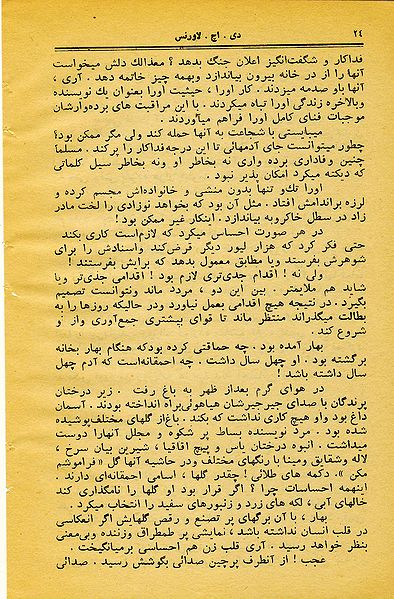 ۲٤ دی . اچ . لاورنس
فداکار و شگفت‌انگیز اعلان جنگ بدهد ؟ معذالك دلش میخواست
آنها را از در خانه بیرون بیاندازد وبهمه چیز خاتمه دهد . آری ،
آنها باو صدمه میزدند . کار اورا ، حیثیت اورا بعنوان یك نویسنده
وبالاخره زندگی اورا تباه میکردند . با این مراقبت های برده‌وارشان
موجبات فنای کامل اورا فراهم میآوردند .
میبایستی با شجاعت به آنها حمله کند ولی مگر ممکن بود؟
چطور میتوانست جای آدمهائی تا این درجه‌فداکار را پرکند . مسلما
چنین وفاداری برده واری نه بخاطر او ونه بخاطر سیل کلماتی
که دیکته میکرد امکان پذیر نبود .
اورا تك‌و تنها بدون منشی و خانواده‌اش مجسم کرده و
لرزه براندامش افتاد . مثل آن بود که بخواهد نوزادی را لخت مادر
زاد در سطل خاکروبه بیاندازد . اینکار غیر ممکن بود !
در هر صورت احساس میکرد که لازم‌است کاری بکند
حتی فکر کرد که هزار لیور دیگر قرض‌کند واسنادش را برای
شوهرش بفرستد ویا مطابق معمول بدهد که برایش بفرستند !
ولی نه ! اقدام جدی‌تری لازم بود ! اقدامی جدی‌تر ویا
شاید هم ملایمتر . بین این دو ، مردد ماند ونتوانست تصمیم
بگیرد . در نتیجه هیچ اقدامی بعمل نیاورد ودر حالیکه روزها را به
بطالت میگذراند منتظر ماند تا قوای بیشتری جمع‌آوری واز نو
شروع کند .
بهار آمده بود . چه حماقتی کرده بودکه هنگام بهار بخانه
برگشته بود . او چهل سال داشت . چه احمقانه‌است که آدم چهل
سال داشته باشد !
در هوای گرم بعداز ظهر به باغ رفت . زیر درختان
پرندگان با صدای جیرجیرشان هیاهوئی‌براه انداخته بودند . آسمان
داغ بود واو هیچ کاری نداشت که بکند . باغ‌از گلهای مختلف‌پوشیده
شده بود . مرد نویسنده بساط پر شکوه و مجلل آنهارا دوست
میداشت . انبوه درختان یاس و پیچ اقاقیا ، شیرین بیان سرخ ،
لاله وشقایق ومینا با رنگهای مختلف ودر حاشیه آنها گل «فراموشم
مکن » . دکمه های طلائی ! چقدر گلها ، اسامی احمقانه‌ای دارند .
اینهمه احساسات چرا ؟ اگر قرار بود او گلها را نامگذاری کند
خالهای آبی ، لکه های زرد و زئبورهای سفید را انتخاب میکرد .
بهار ، با آن برگهای پر تصنع و رقص گلهایش اگر انعکاسی
در قلب انسان نداشته باشد ، نمایشی پر طمطراق وزننده وبی‌معنی
بنظر خواهد رسید . آری قلب زن هم احساسی برمیانگیخت .
عجب ! از آنطرف پرچین صدائی بگوشش رسید . صدائی